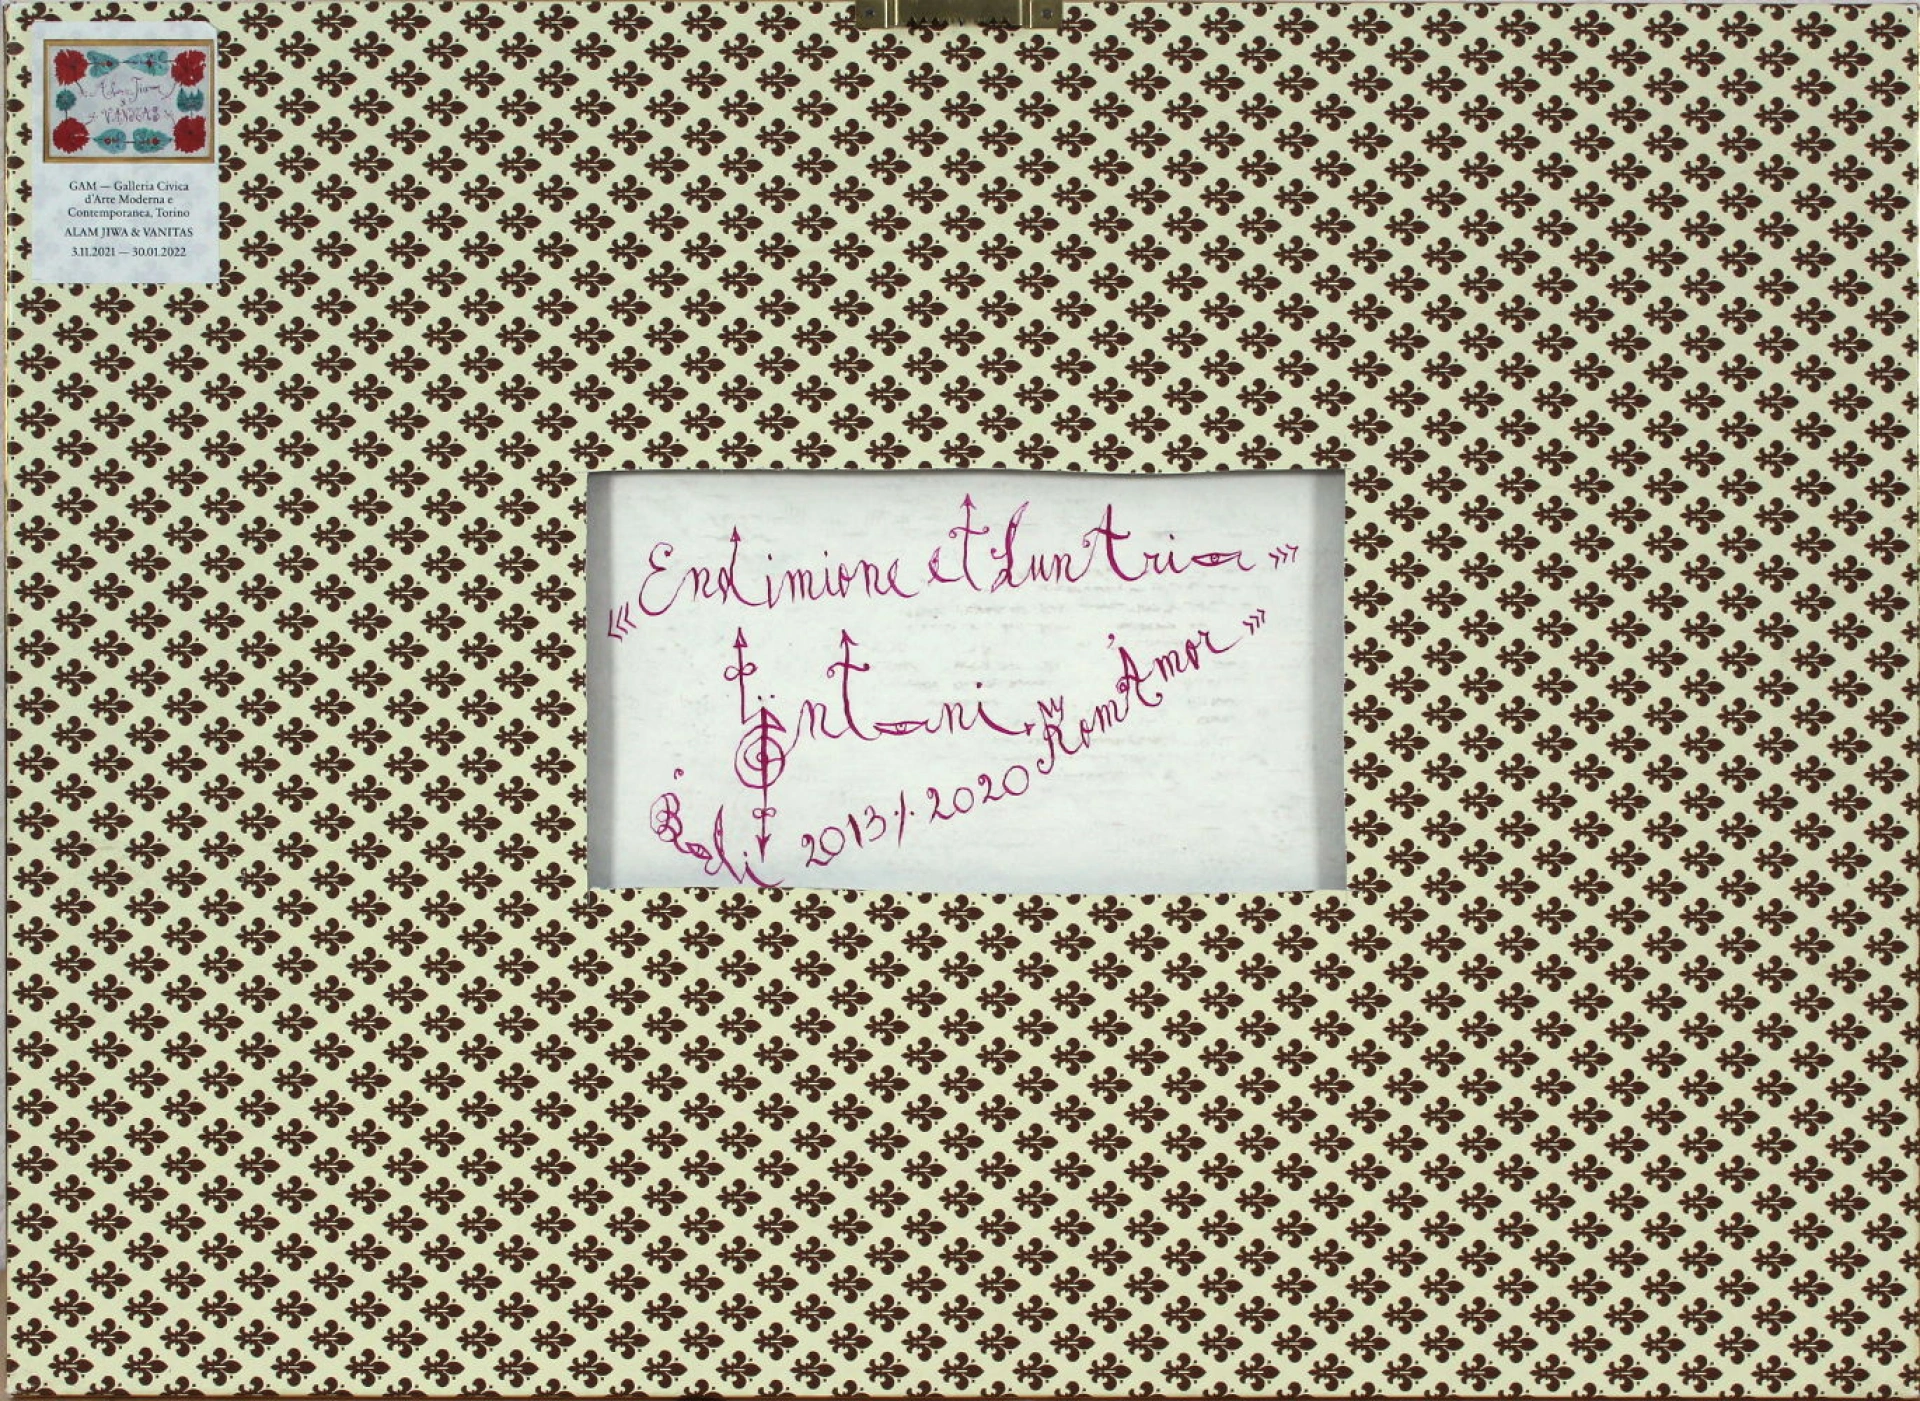 Alam Jiwa
&
VANITAS
GAM — Galleria Civica
d'Arte Moderna e
Contemporanea, Torino
ALAM JIWA & VANITAS
3.11.2021 — 30.01.2022
««Endimione et LunAtria»»
Öntani
RomAmor»»
Bali 2013/.2020